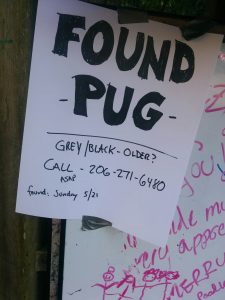 FOUND
- PUG -
GREY/BLACK - OLDER?
CALL - 206-271-6480
ASAP
found: Sunday 5/21
you!
made m
very appre
MERRY